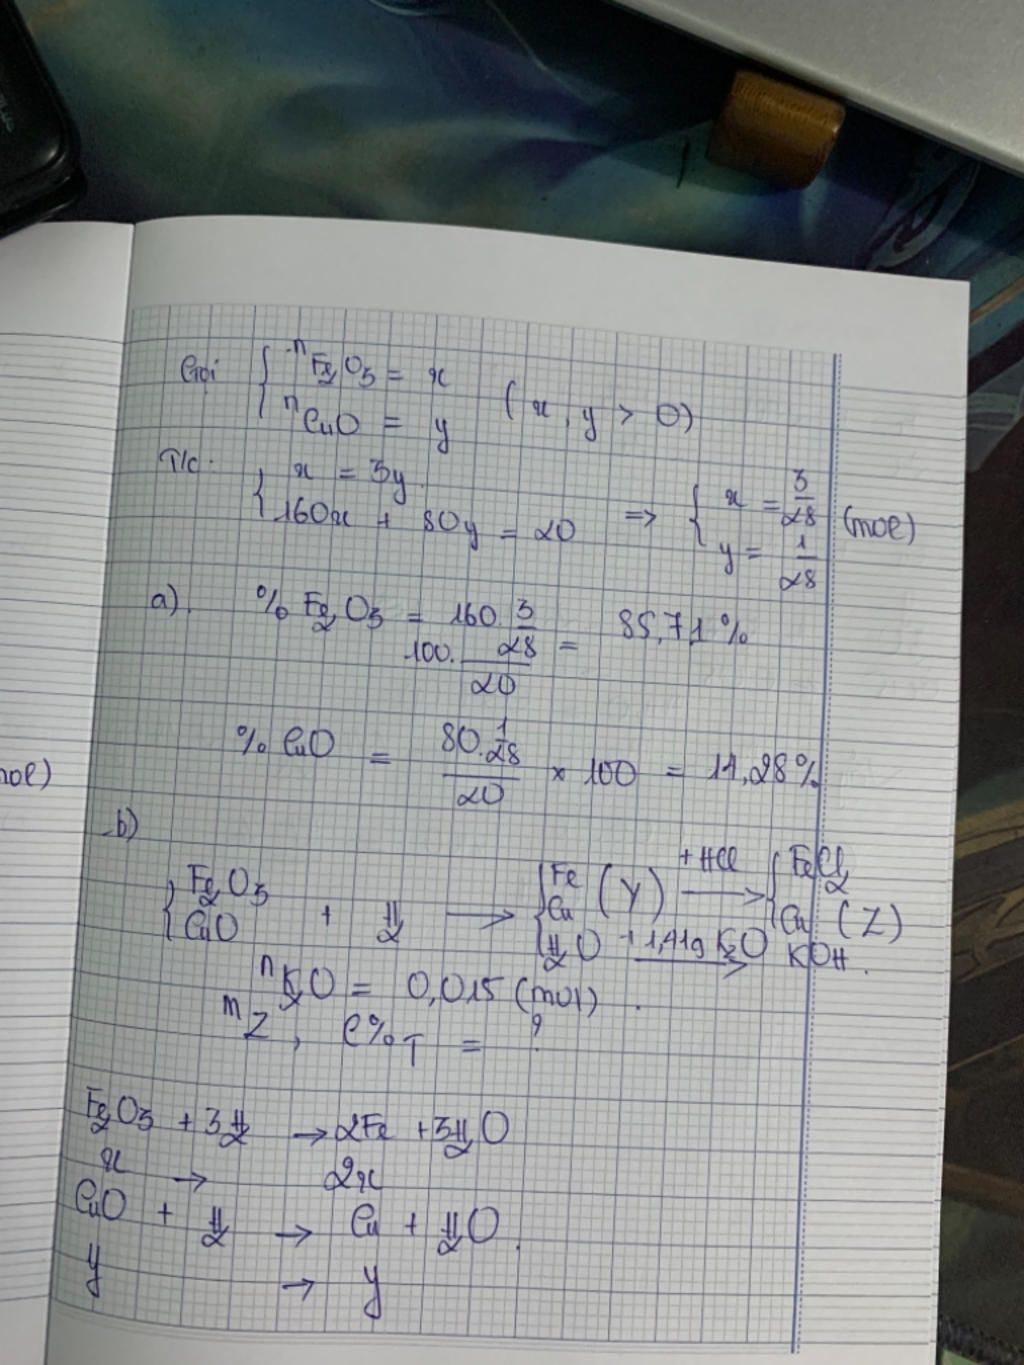 Gọi { nFe2O3 = x
nCuO = y (x, y > 0)
T/c: { x = 3y
160x + 80y = 20 => { x = 3/28
y = 1/28 (mol)
a) %Fe2O3 = 100. 160. 3/28 / 20 = 85,71%
%CuO = 80. 1/28 / 20 × 100 = 14,28%
b)
{ Fe2O3
CuO + H2 → { Fe
Cu (Y) +HCl → { FeCl2
Cu (Z)
H2O +1,41g K2O → KOH.
nK2O = 0,015 (mol).
mZ, C%T = ?
Fe2O3 + 3H2 → 2Fe + 3H2O
x → 2x
CuO + H2 → Cu + H2O.
y → y
mol)